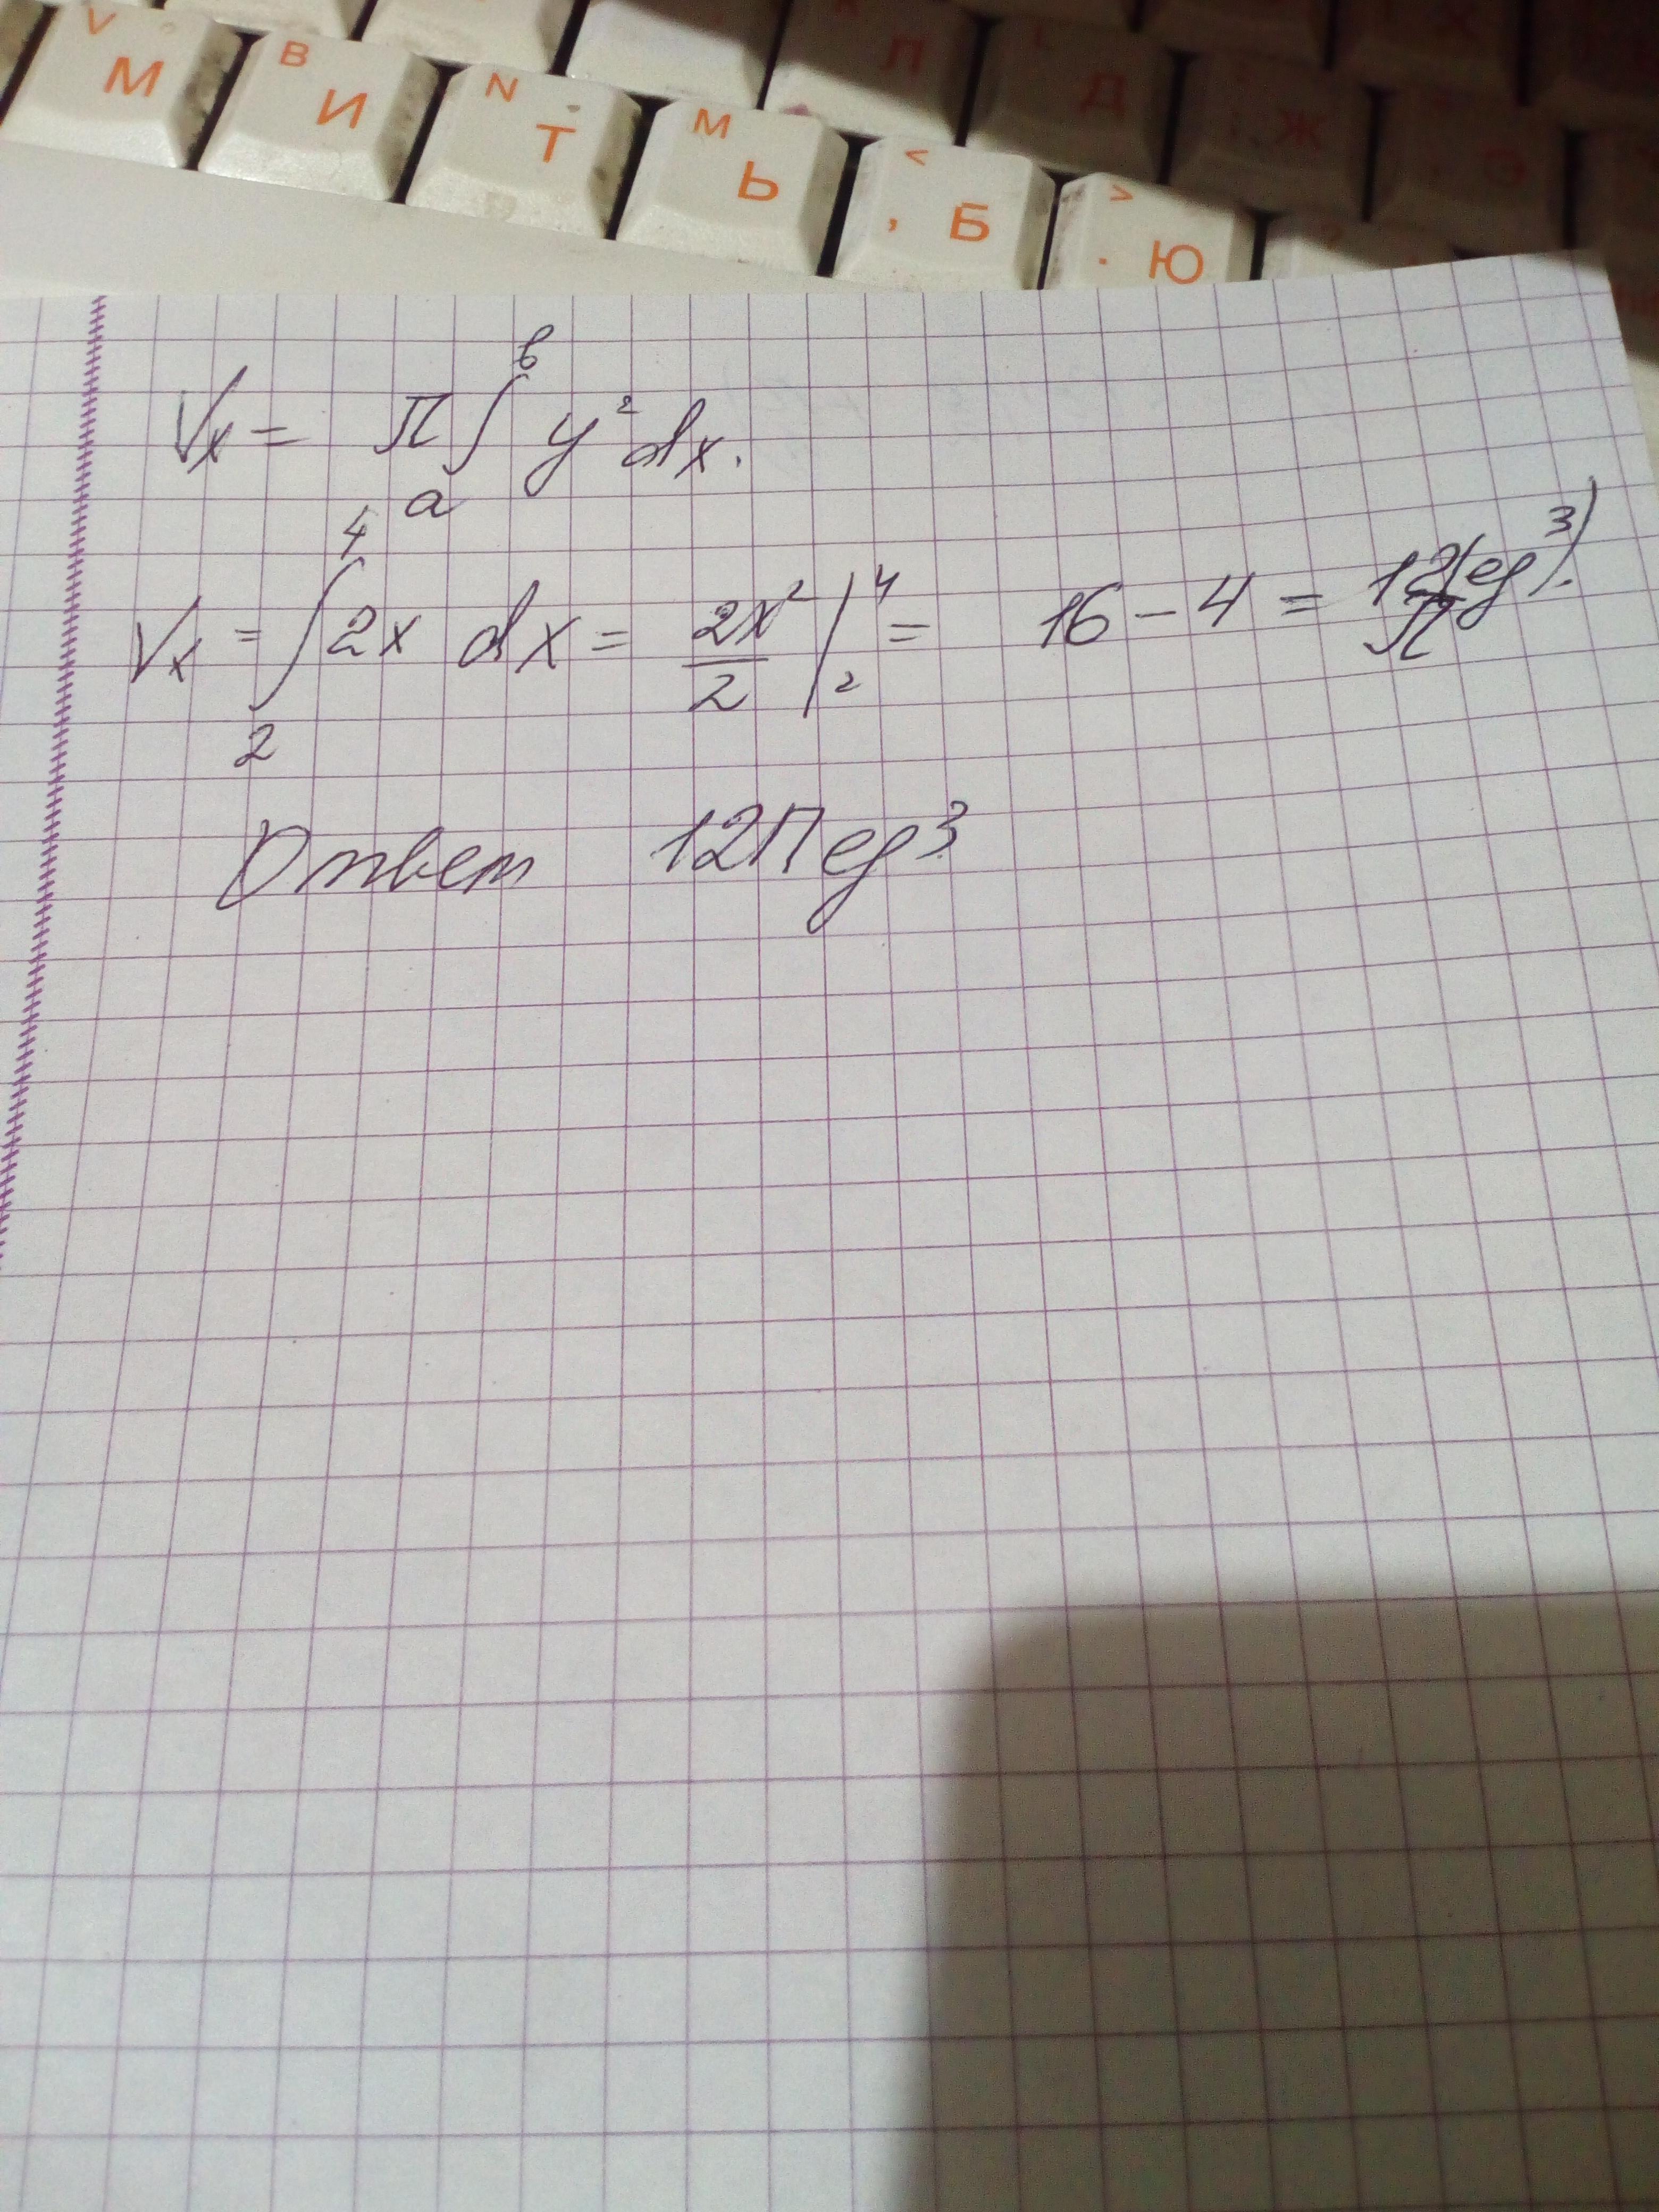 V М B И N Т M Ь < , Б > . Ю
Л Д Ж Э
Vx = π∫ₐᵇ y² dx.
Vx = ∫₂⁴ 2x dx = 2x²/2 |₂⁴ = 16 - 4 = 12π(ед³).
Ответ 12П ед³.